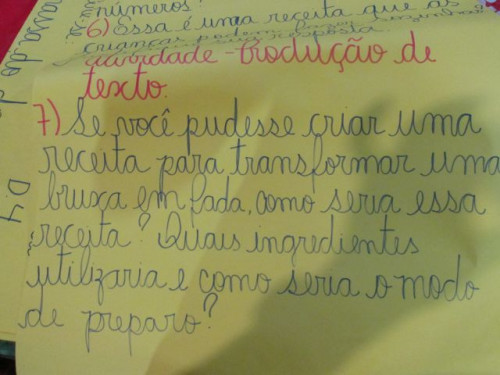 números?
6) Essa é uma receita que as
crianças podem fazer sozinhas?
resposta.
atividade - Produção de
texto.
7) Se você pudesse criar uma
receita para transformar uma
bruxa em fada, como seria essa
receita? Quais ingredientes
utilizaria e como seria o modo
de preparo?